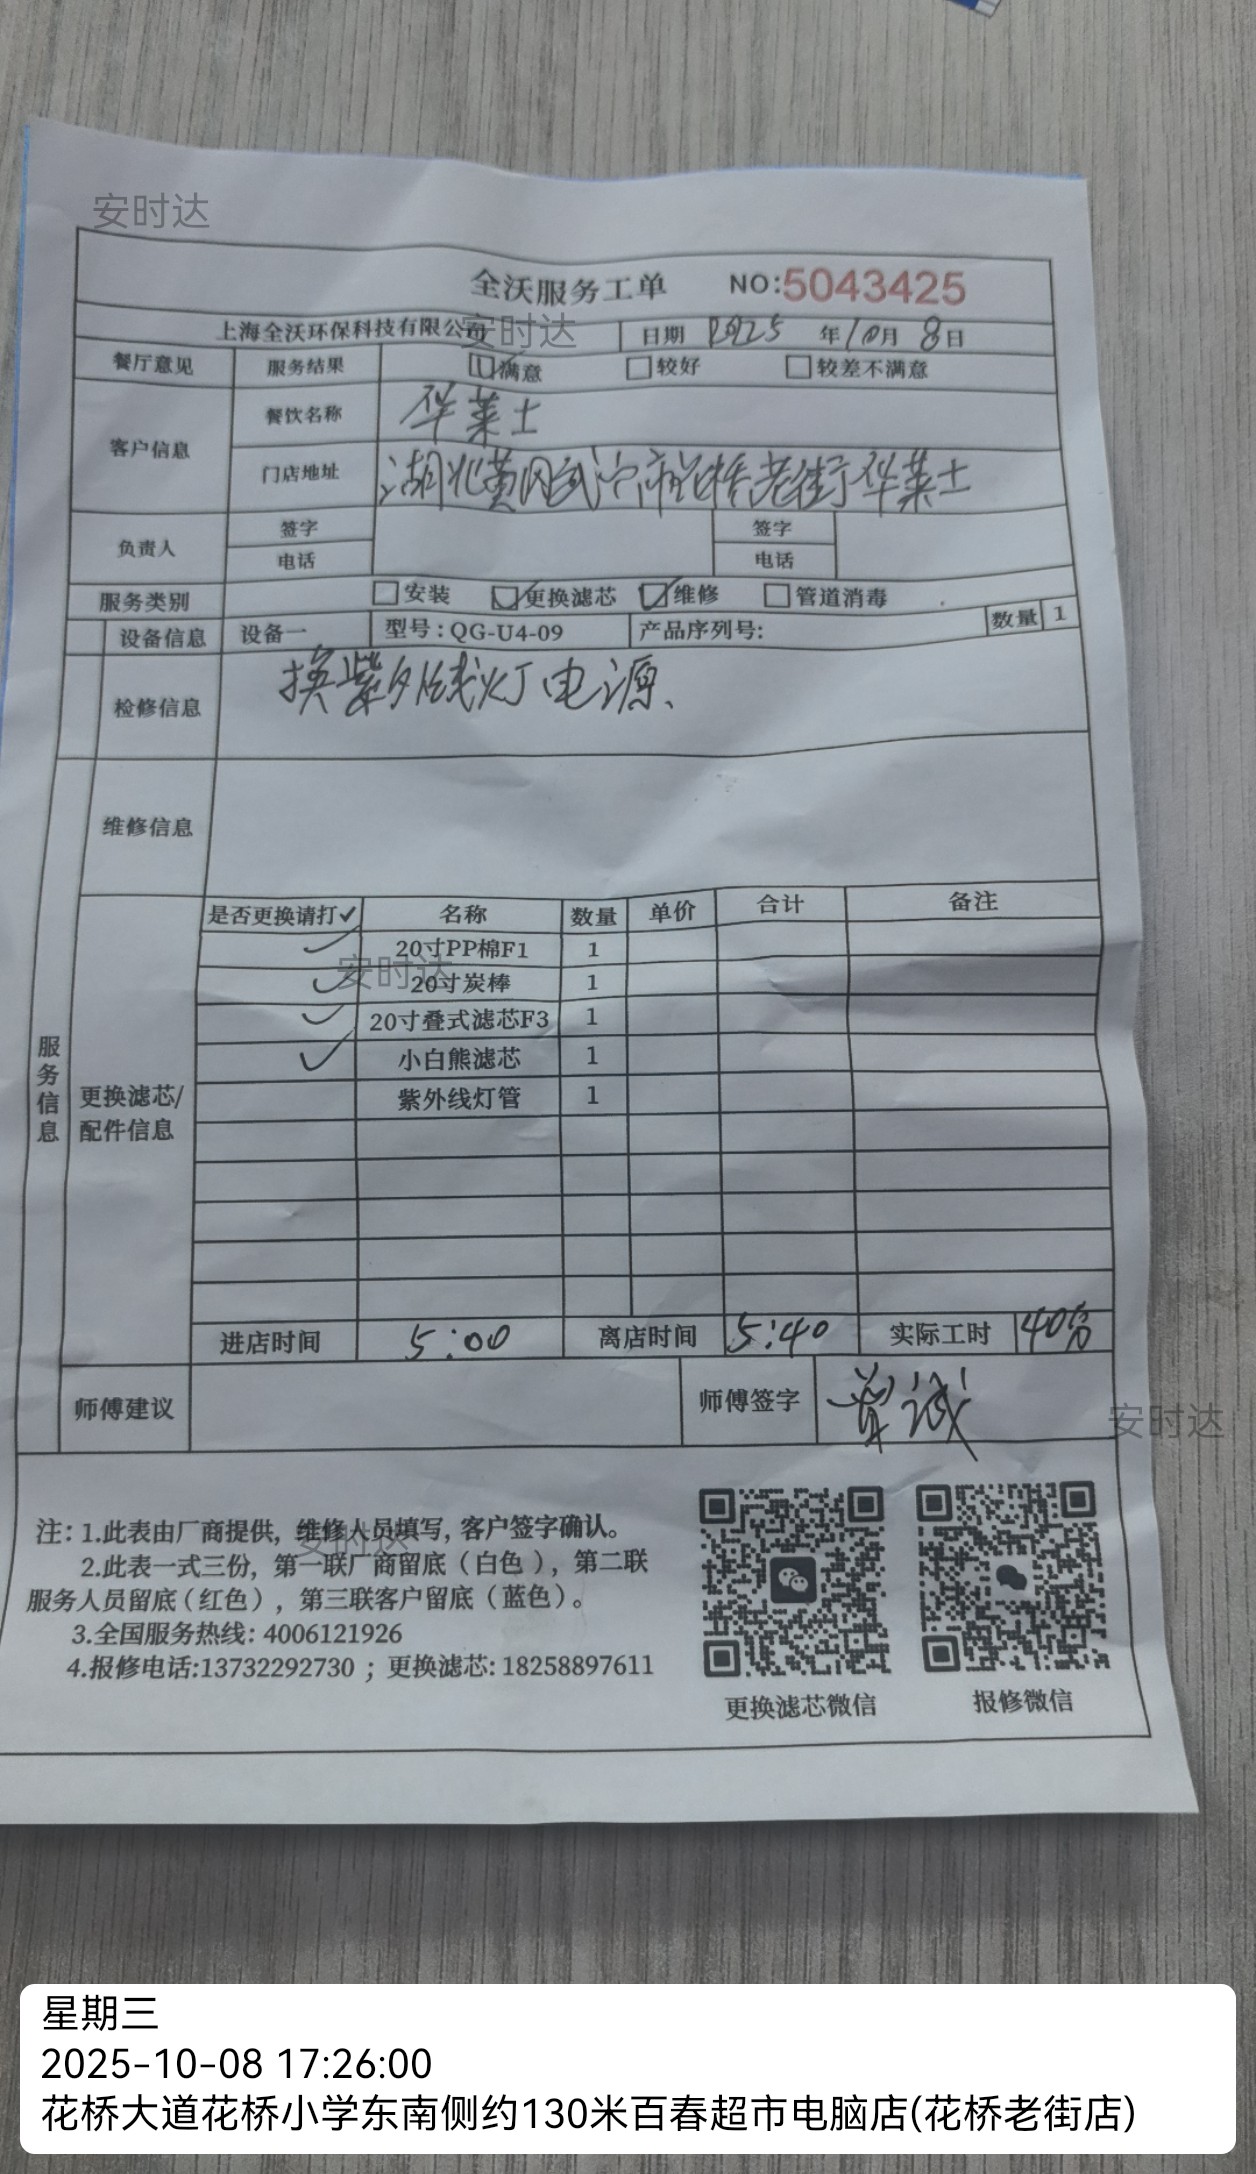 安时达
全沃服务工单 NO:5043425
上海全沃环保科技有限公司 日期 2025 年 10月 8日
安时达
餐厅意见 服务结果 ☑满意 □较好 □较差不满意
客户信息 餐饮名称 华莱士
门店地址 湖北黄冈武穴市花桥老街华莱士
负责人 签字 签字
电话 电话
服务类别 □安装 ☑更换滤芯 ☑维修 □管道消毒
设备信息 设备一 型号:QG-U4-09 产品序列号: 数量 1
检修信息 换紫外线灯电源、
维修信息
服务信息
更换滤芯/配件信息
是否更换请打✓ 名称 数量 单价 合计 备注
✓ 20寸PP棉F1 1
安时达
✓ 20寸炭棒 1
✓ 20寸叠式滤芯F3 1
✓ 小白熊滤芯 1
紫外线灯管 1
进店时间 5:00 离店时间 5:40 实际工时 40分
师傅建议 师傅签字 曾诚
安时达
注: 1.此表由厂商提供, 维修人员填写, 客户签字确认。
安时达
2.此表一式三份, 第一联厂商留底(白色), 第二联
服务人员留底(红色), 第三联客户留底(蓝色)。
3.全国服务热线: 4006121926
4.报修电话:13732292730 ; 更换滤芯: 18258897611
更换滤芯微信 报修微信
星期三
2025-10-08 17:26:00
花桥大道花桥小学东南侧约130米百春超市电脑店(花桥老街店)